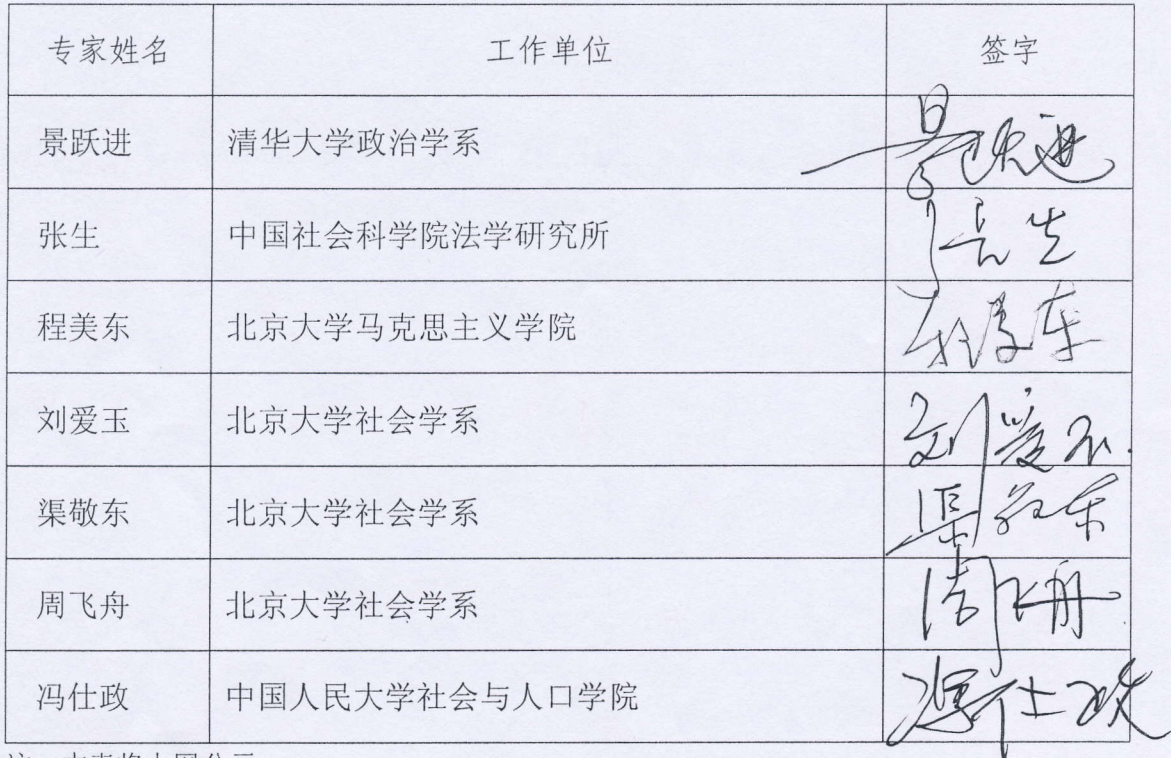 专家姓名 工作单位 签字
景跃进 清华大学政治学系 景跃进
张生 中国社会科学院法学研究所 张生
程美东 北京大学马克思主义学院 程美东
刘爱玉 北京大学社会学系 刘爱玉
渠敬东 北京大学社会学系 渠敬东
周飞舟 北京大学社会学系 周飞舟
冯仕政 中国人民大学社会与人口学院 冯仕政